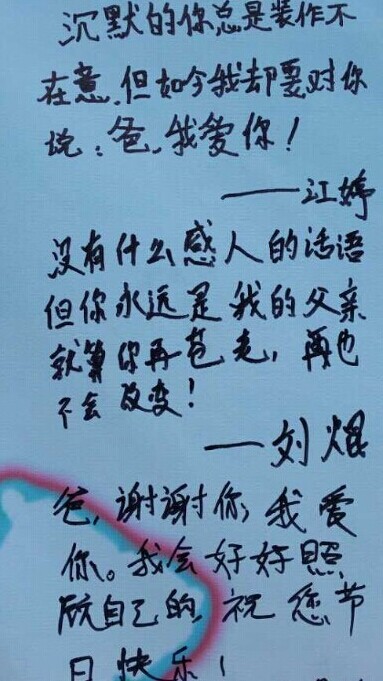 沉默的你总是装作不
在意.但如今我却要对你
说:爸,我爱你!
——江婷
没有什么感人的话语
但你永远是我的父亲
就算你再苍老,再也
不会改变!
——刘焜
爸,谢谢你,我爱
你。我会好好照
顾自己的 祝您节
日快乐!